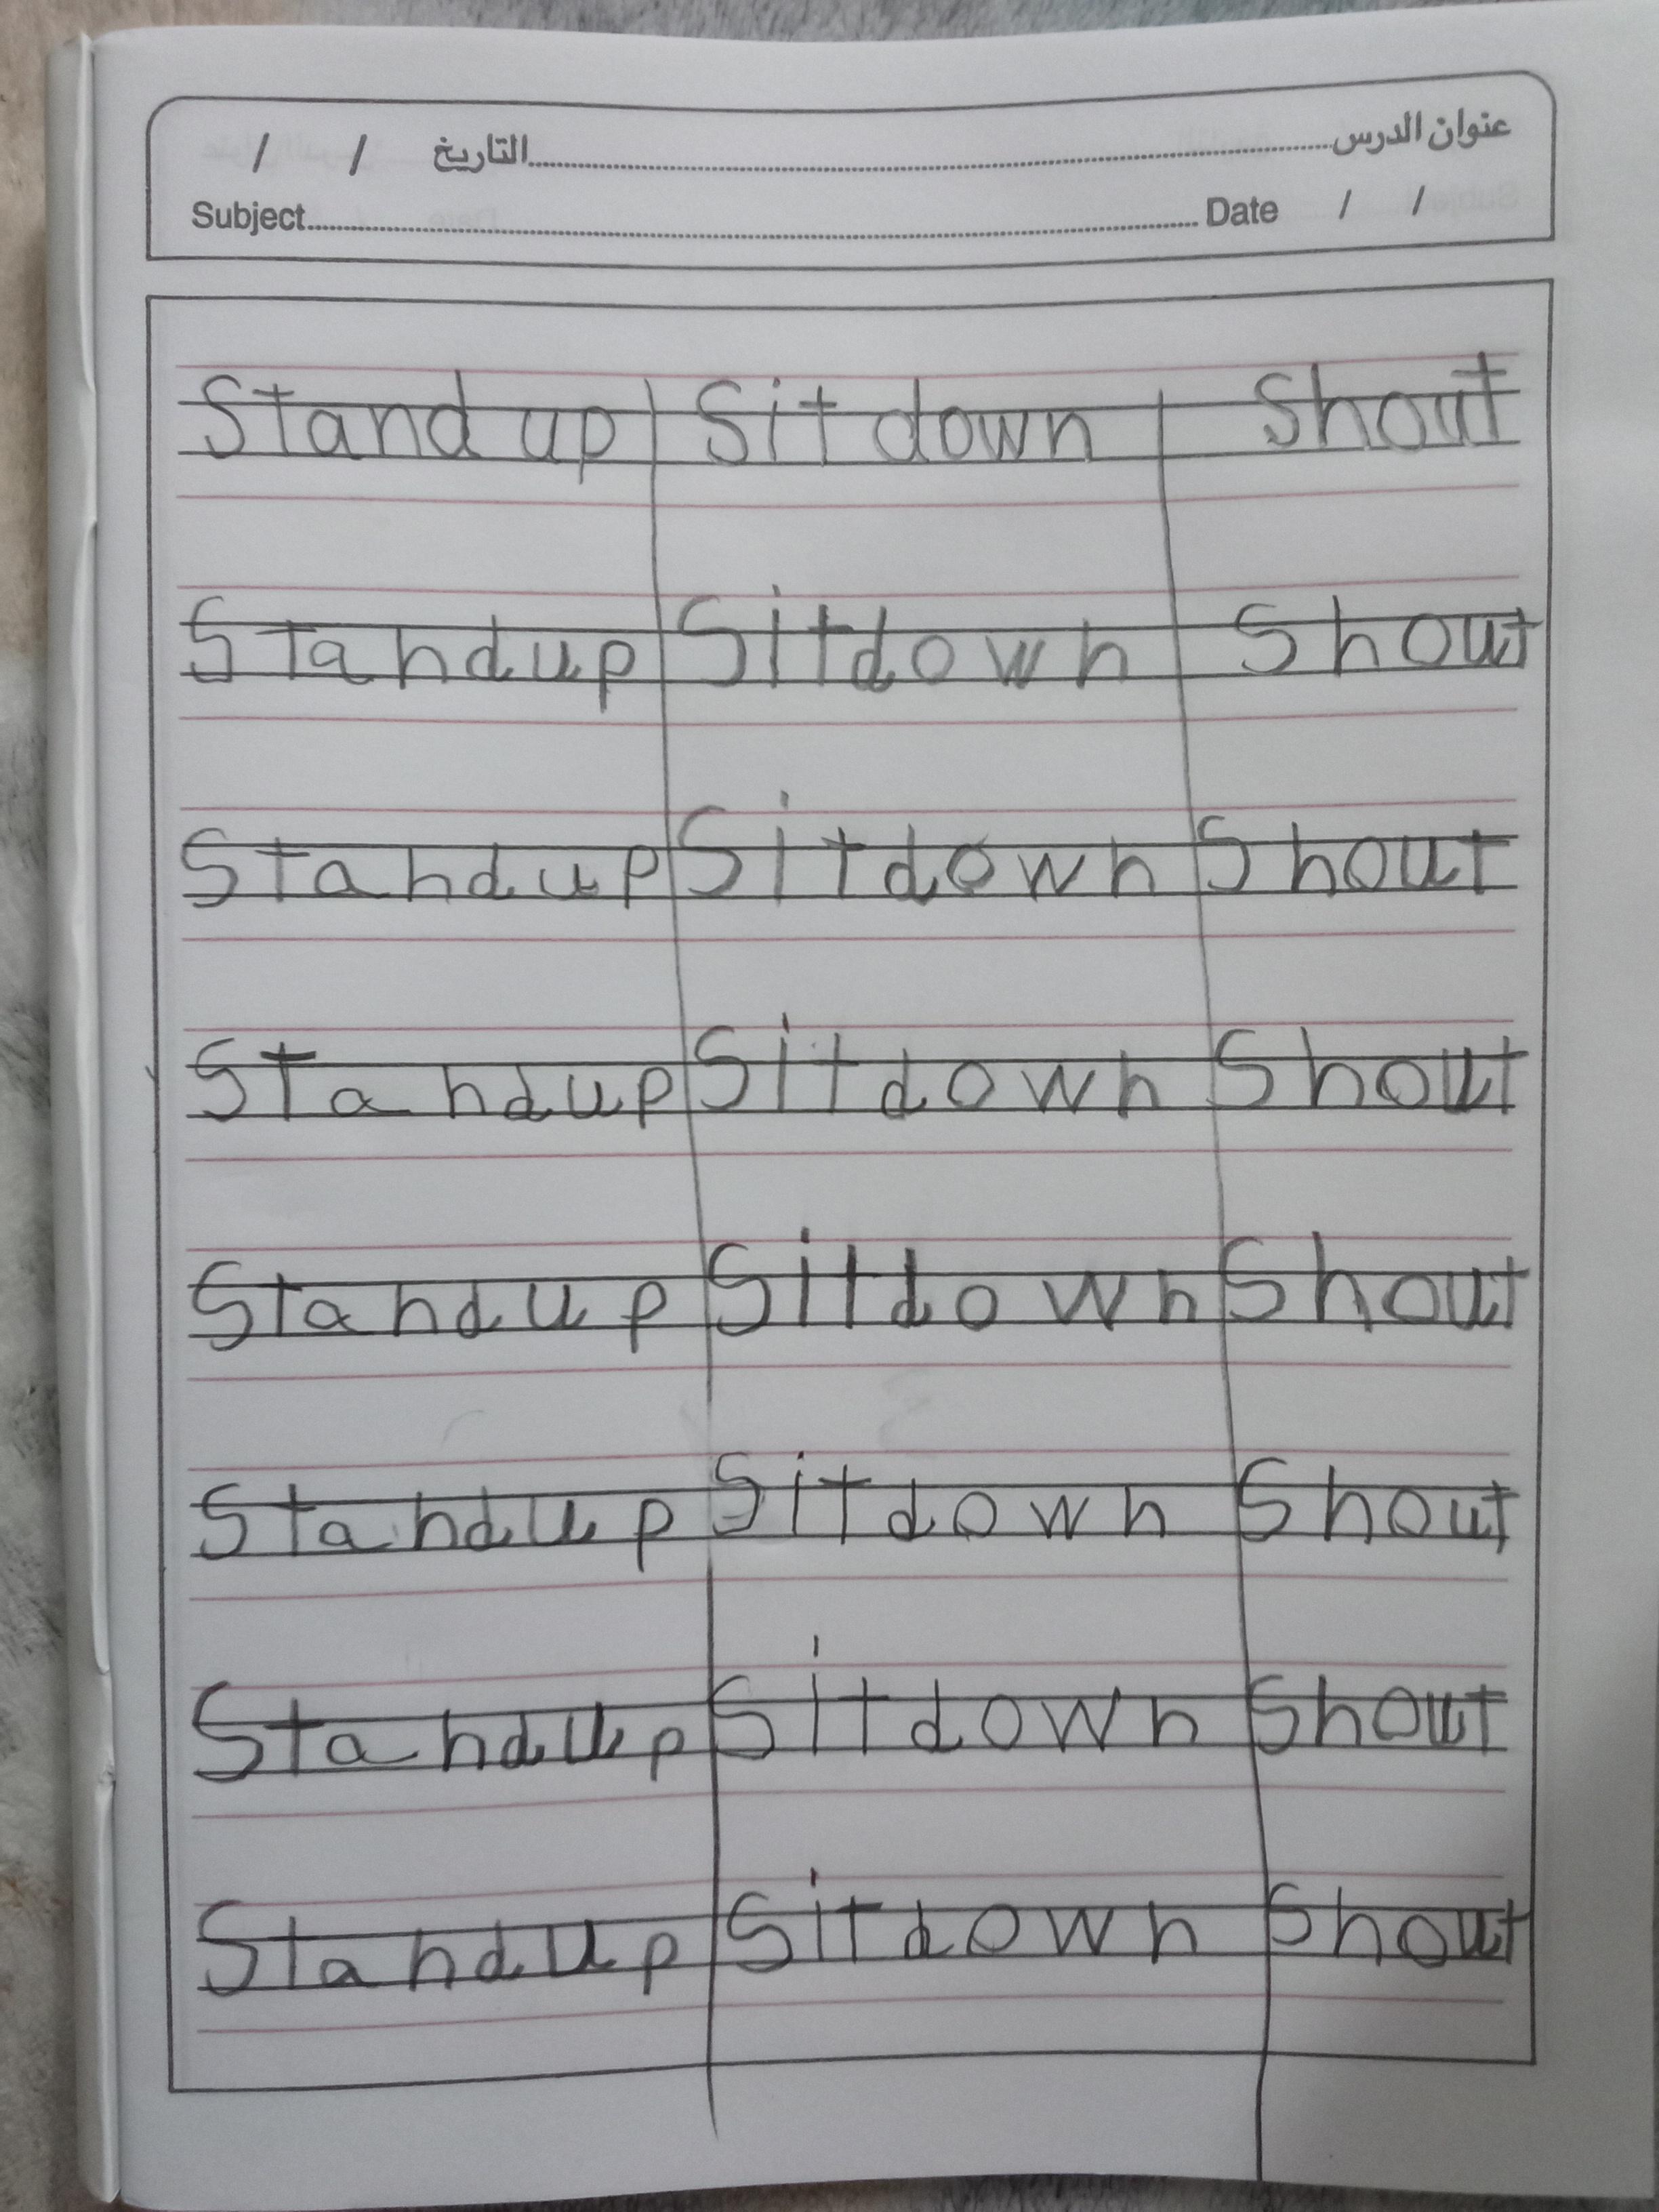 عنوان الدرس التاريخ / /
Subject Date / /
Stand up Sit down Shout
Standup Sitdown Shout
Standup Sitdown Shout
Standup Sitdown Shout
Standup Sitdown Shout
Standup Sitdown Shout
Standup Sitdown Shout
Standup Sitdown Shout